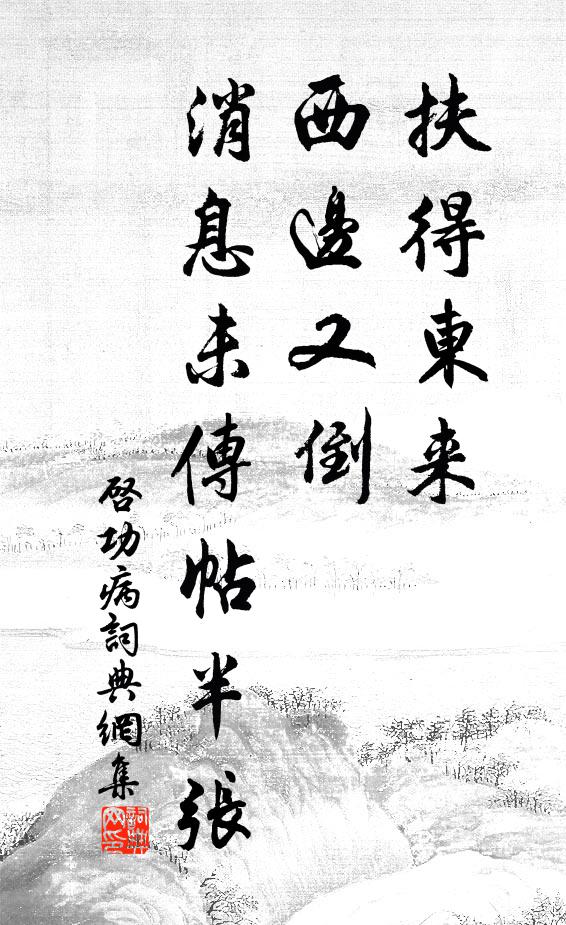 扶得東来
西邊又倒
消息未傳帖半張
啓功病詞典網集